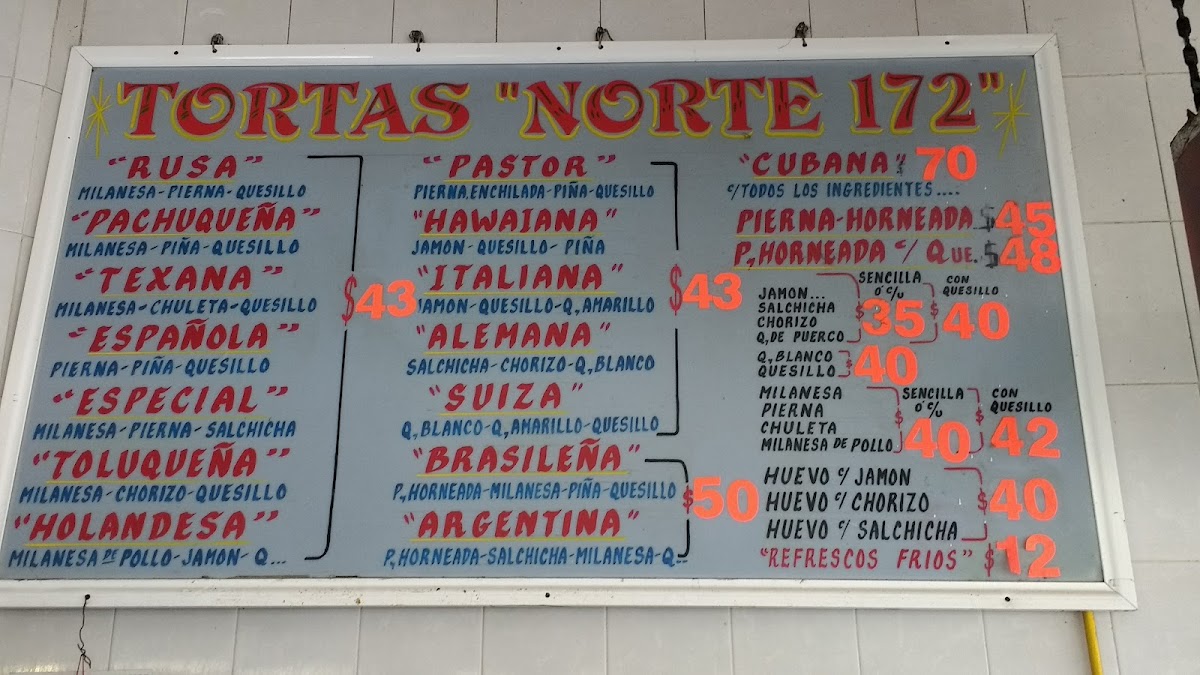 TORTAS "NORTE 172"
"RUSA"
MILANESA-PIERNA-QUESILLO
"PACHUQUEÑA"
MILANESA-PIÑA-QUESILLO
"TEXANA"
MILANESA-CHULETA-QUESILLO
"ESPAÑOLA"
PIERNA-PIÑA-QUESILLO
"ESPECIAL"
MILANESA-PIERNA-SALCHICHA
"TOLUQUEÑA"
MILANESA-CHORIZO-QUESILLO
"HOLANDESA"
MILANESA DE POLLO-JAMON-Q...
$43
"PASTOR"
PIERNA,ENCHILADA-PIÑA-QUESILLO
"HAWAIANA"
JAMON-QUESILLO-PIÑA
"ITALIANA"
JAMON-QUESILLO-Q,AMARILLO
"ALEMANA"
SALCHICHA-CHORIZO-Q,BLANCO
"SUIZA"
Q,BLANCO-Q,AMARILLO-QUESILLO
$43
"BRASILEÑA"
P,HORNEADA-MILANESA-PIÑA-QUESILLO
"ARGENTINA"
P,HORNEADA-SALCHICHA-MILANESA-Q...
$50
"CUBANA" $70
C/TODOS LOS INGREDIENTES....
PIERNA-HORNEADA $45
P,HORNEADA C/ QUE. $48
SENCILLA Ó C/U
CON QUESILLO
JAMON...
SALCHICHA
CHORIZO
Q,DE PUERCO
$35 $40
Q,BLANCO
QUESILLO
$40
SENCILLA Ó C/U
CON QUESILLO
MILANESA
PIERNA
CHULETA
MILANESA DE POLLO
$40 $42
HUEVO C/ JAMON
HUEVO C/ CHORIZO
HUEVO C/ SALCHICHA
$40
"REFRESCOS FRIOS" $12